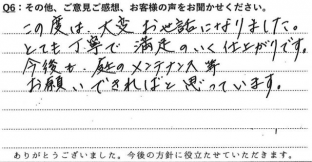 Q6：その他、ご意見ご感想、お客様の声をお聞かせください。
この度は、大変お世話になりました。
とても丁寧で満足のいく仕上がりです。
今後も、庭のメンテナンス等
お願いできればと思っています。
ありがとうございました。今後の方針に役立たせていただきます。